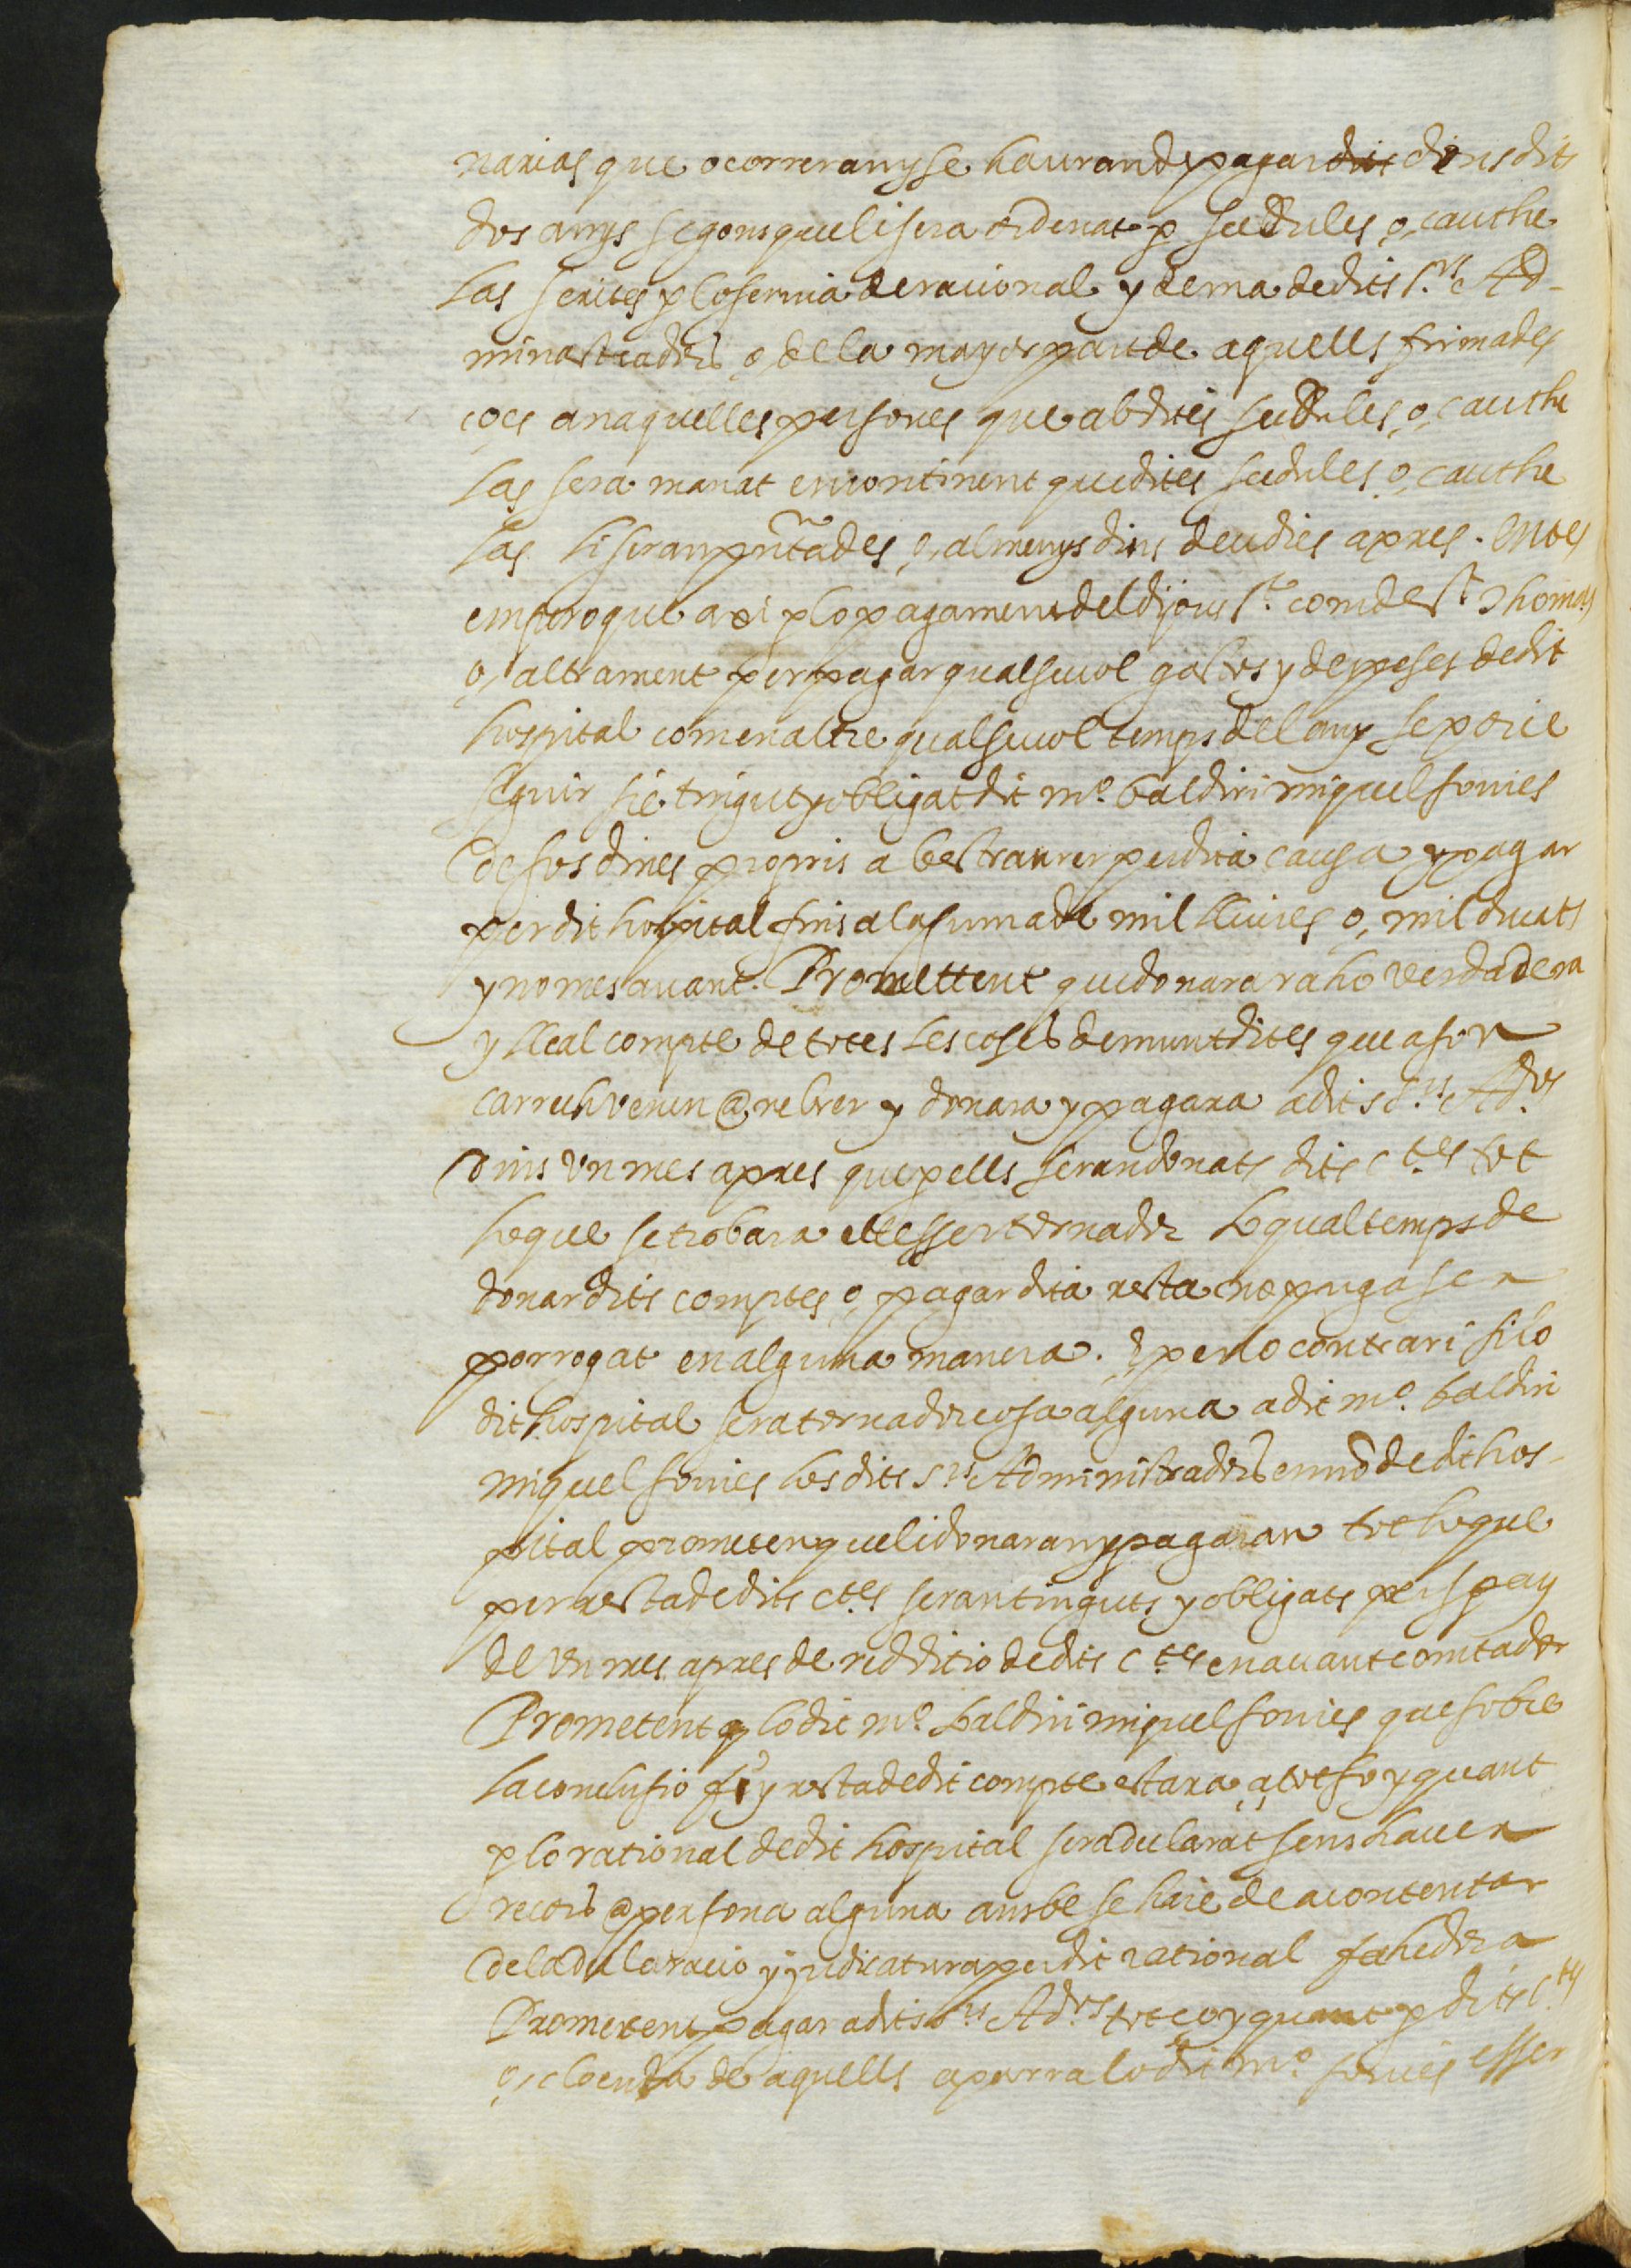 narias que ocorreran y se hauran de pagar dit dins dits
dos anys segons que li sera ordenat p scedules o, cauthe
las scrites p lo scriua de racional y de ma de dits s.rs Ad-
ministradors o, de la mayor part de aquells firmades
ço es an aquelles persones que ab dites scedules o, cauthe
las sera manat encontinent que dites scedules o, cauthe
las li seran pntades o, almenys dins deu dies apres. Entes
empero que axi p lo pagament del dijous s.t com de s.t Thomas
o, altrament per pagar qualseuol gastos y despeses de dit
hospital com en altre qualseuol temps del any se porie
seguir sie tingut y obligat dit m.o baldiri miquel fonies
de sos dines propris a bestraurer per dita causa y pagar
per dit hospital fins a la suma de mil lliures o, mil ducats
y no mes auant. Promettent que donara raho verdadera
y lleal compte de totes les coses demunt dites que a son
carrech venen @ rebrer y donara y pagara a dits s.rs Ad.rs
dins vn mes apres que p ells seran donats dits c.tes tot
lo que se trobara ell esser tornador lo qual temps de
donar dits comptes o, pagar dita resta no puga ser
porrogat en alguna manera. E per lo contrari si lo
dit hospital sera tornador cosa alguna a dit m.o baldiri
miquel fonies los dits s.rs Administradors en nõ de dit hos-
pital prometen que li donaran y pagaran tot lo que
per resta de dits c.tes seran tinguts y obligats per spay
de vn mes apres de redditio de dits c.tes en auant comtador
Prometent p lo dit m.o baldiri miquel fonies que sobre
la conclusio fi y resta de dit compte estara a tot ço y quant
p lo rational de dit hospital sera declarat sens hauer
recors @ persona alguna ans be se haie de acontentar
de la declaracio y judicatura per dit rational fahedora
Prometent pagar a dits s.rs Ad.rs tot ço y quant p dits c.tes
o, cloenda de aquells aparra lo dit m.o fonies esser